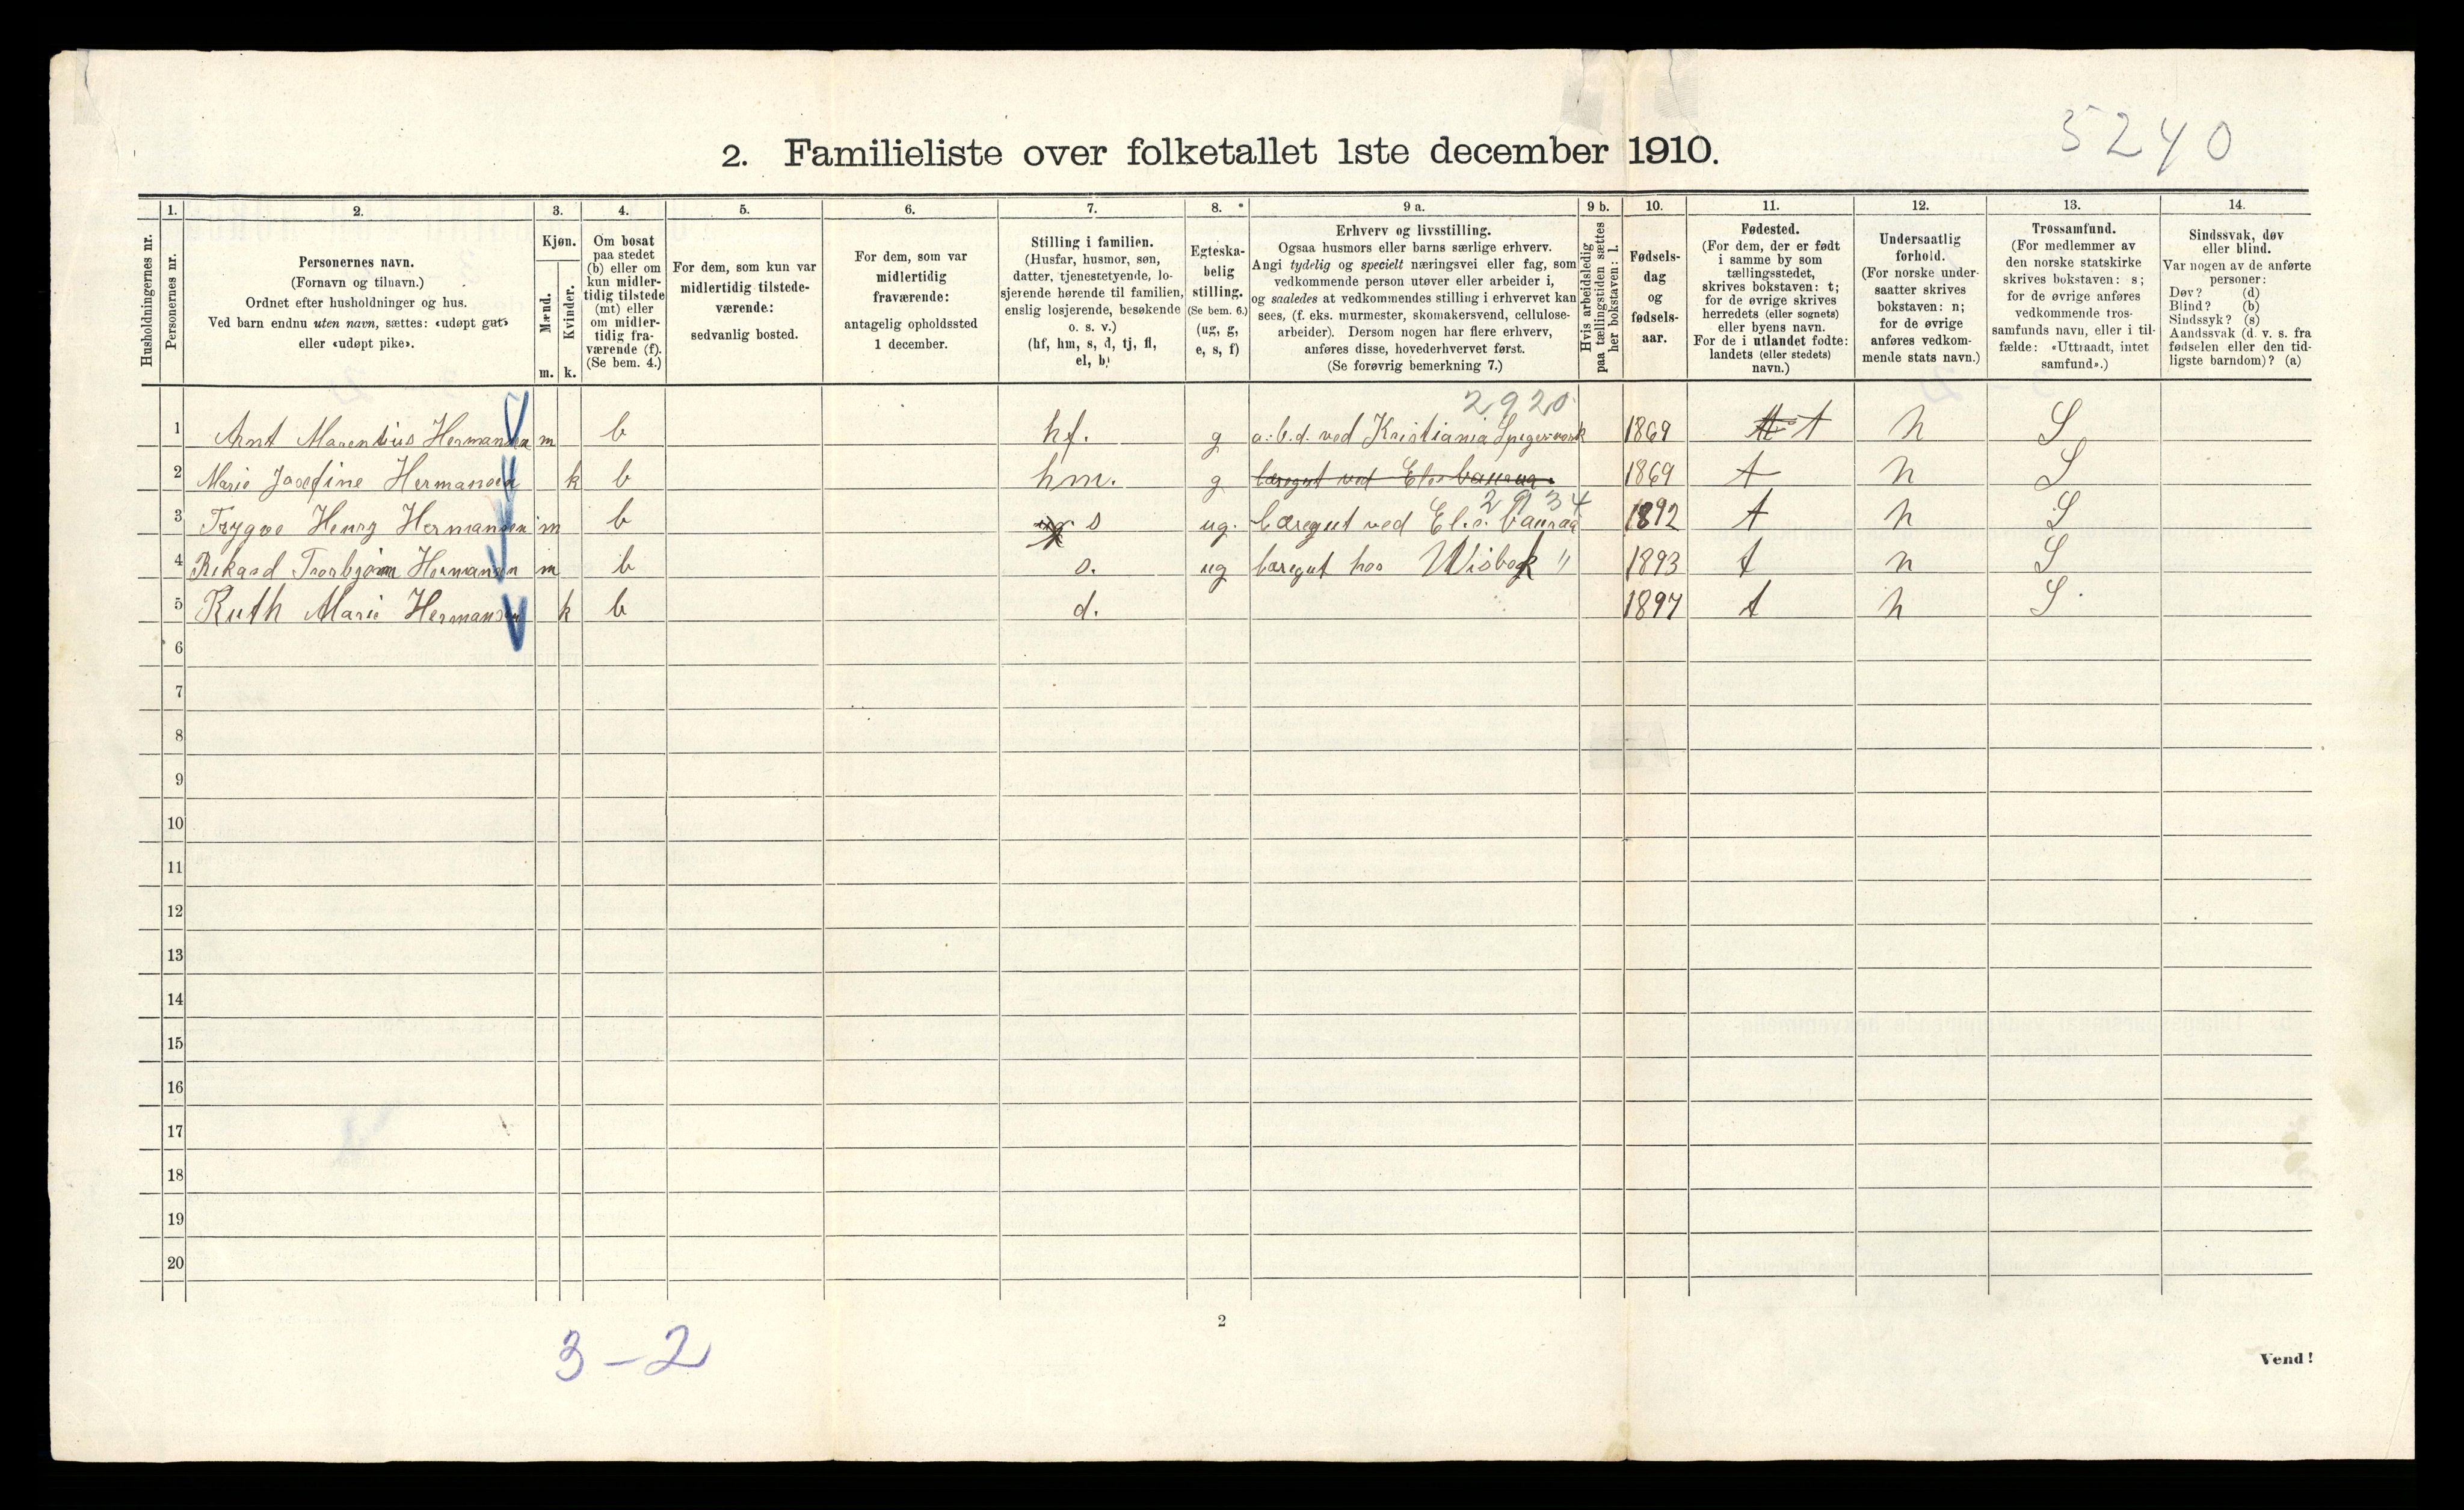 5240
2. Familieliste over folketallet 1ste december 1910.
Husholdningernes nr.
1.
Personernes nr.
2.
Personernes navn.
(Fornavn og tilnavn.)
Ordnet efter husholdninger og hus.
Ved barn endnu uten navn, sættes: «udøpt gut»
eller «udøpt pike».
3.
Kjøn.
Mænd.
Kvinder.
m.
k.
4.
Om bosat
paa stedet
(b) eller om
kun midler-
tidig tilstede
(mt) eller
om midler-
tidig fra-
værende (f).
(Se bem. 4.)
5.
For dem, som kun var
midlertidig tilstede-
værende:
sedvanlig bosted.
6.
For dem, som var
midlertidig
fraværende:
antagelig opholdssted
1 december.
7.
Stilling i familien.
(Husfar, husmor, søn,
datter, tjenestetyende, lo-
sjerende hørende til familien,
enslig losjerende, besøkende
o. s. v.)
(hf, hm, s, d, tj, fl,
el, b)
8.
Egteska-
belig
stilling.
(Se bem. 6.)
(ug, g,
e, s, f)
9 a.
Erhverv og livsstilling.
Ogsaa husmors eller barns særlige erhverv.
Angi tydelig og specielt næringsvei eller fag, som
vedkommende person utøver eller arbeider i,
og saaledes at vedkommendes stilling i erhvervet kan
sees, (f. eks. murmester, skomakersvend, cellulose-
arbeider). Dersom nogen har flere erhverv,
anføres disse, hovederhvervet først.
(Se forøvrig bemerkning 7.)
9 b.
Hvis arbeidsledig
paa tællingstiden sættes
her bokstaven: l.
10.
Fødsels-
dag
og
fødsels-
aar.
11.
Fødested.
(For dem, der er født
i samme by som
tællingsstedet,
skrives bokstaven: t;
for de øvrige skrives
herredets (eller sognets)
eller byens navn.
For de i utlandet fødte:
landets (eller stedets)
navn.)
12.
Undersaatlig
forhold.
(For norske under-
saatter skrives
bokstaven: n;
for de øvrige
anføres vedkom-
mende stats navn.)
13.
Trossamfund.
(For medlemmer av
den norske statskirke
skrives bokstaven: s;
for de øvrige anføres
vedkommende tros-
samfunds navn, eller i til-
fælde: «Uttraadt, intet
samfund».)
14.
Sindssvak, døv
eller blind.
Var nogen av de anførte
personer:
Døv? (d)
Blind? (b)
Sindssyk? (s)
Aandssvak (d. v. s. fra
fødselen eller den tid-
ligste barndom)? (a)
2920
1 Arnt Marentius Hermansen m b hf. g a.b.d. ved Kristiania Spigerverk 1869 t n S
2 Marie Josefine Hermansen k b hm. g bæregut ved 1869 t n S
2934
3 Trygve Henry Hermansen m b s ug. bæregut ved 1892 t n S
4 Rikard Thorbjørn Hermansen m b s. ug bæregut hos 1893 t n S
5 Ruth Marie Hermansen k b d. 1897 t n S
6
7
8
9
10
11
12
13
14
15
16
17
18
19
20
2
3-2
Vend!